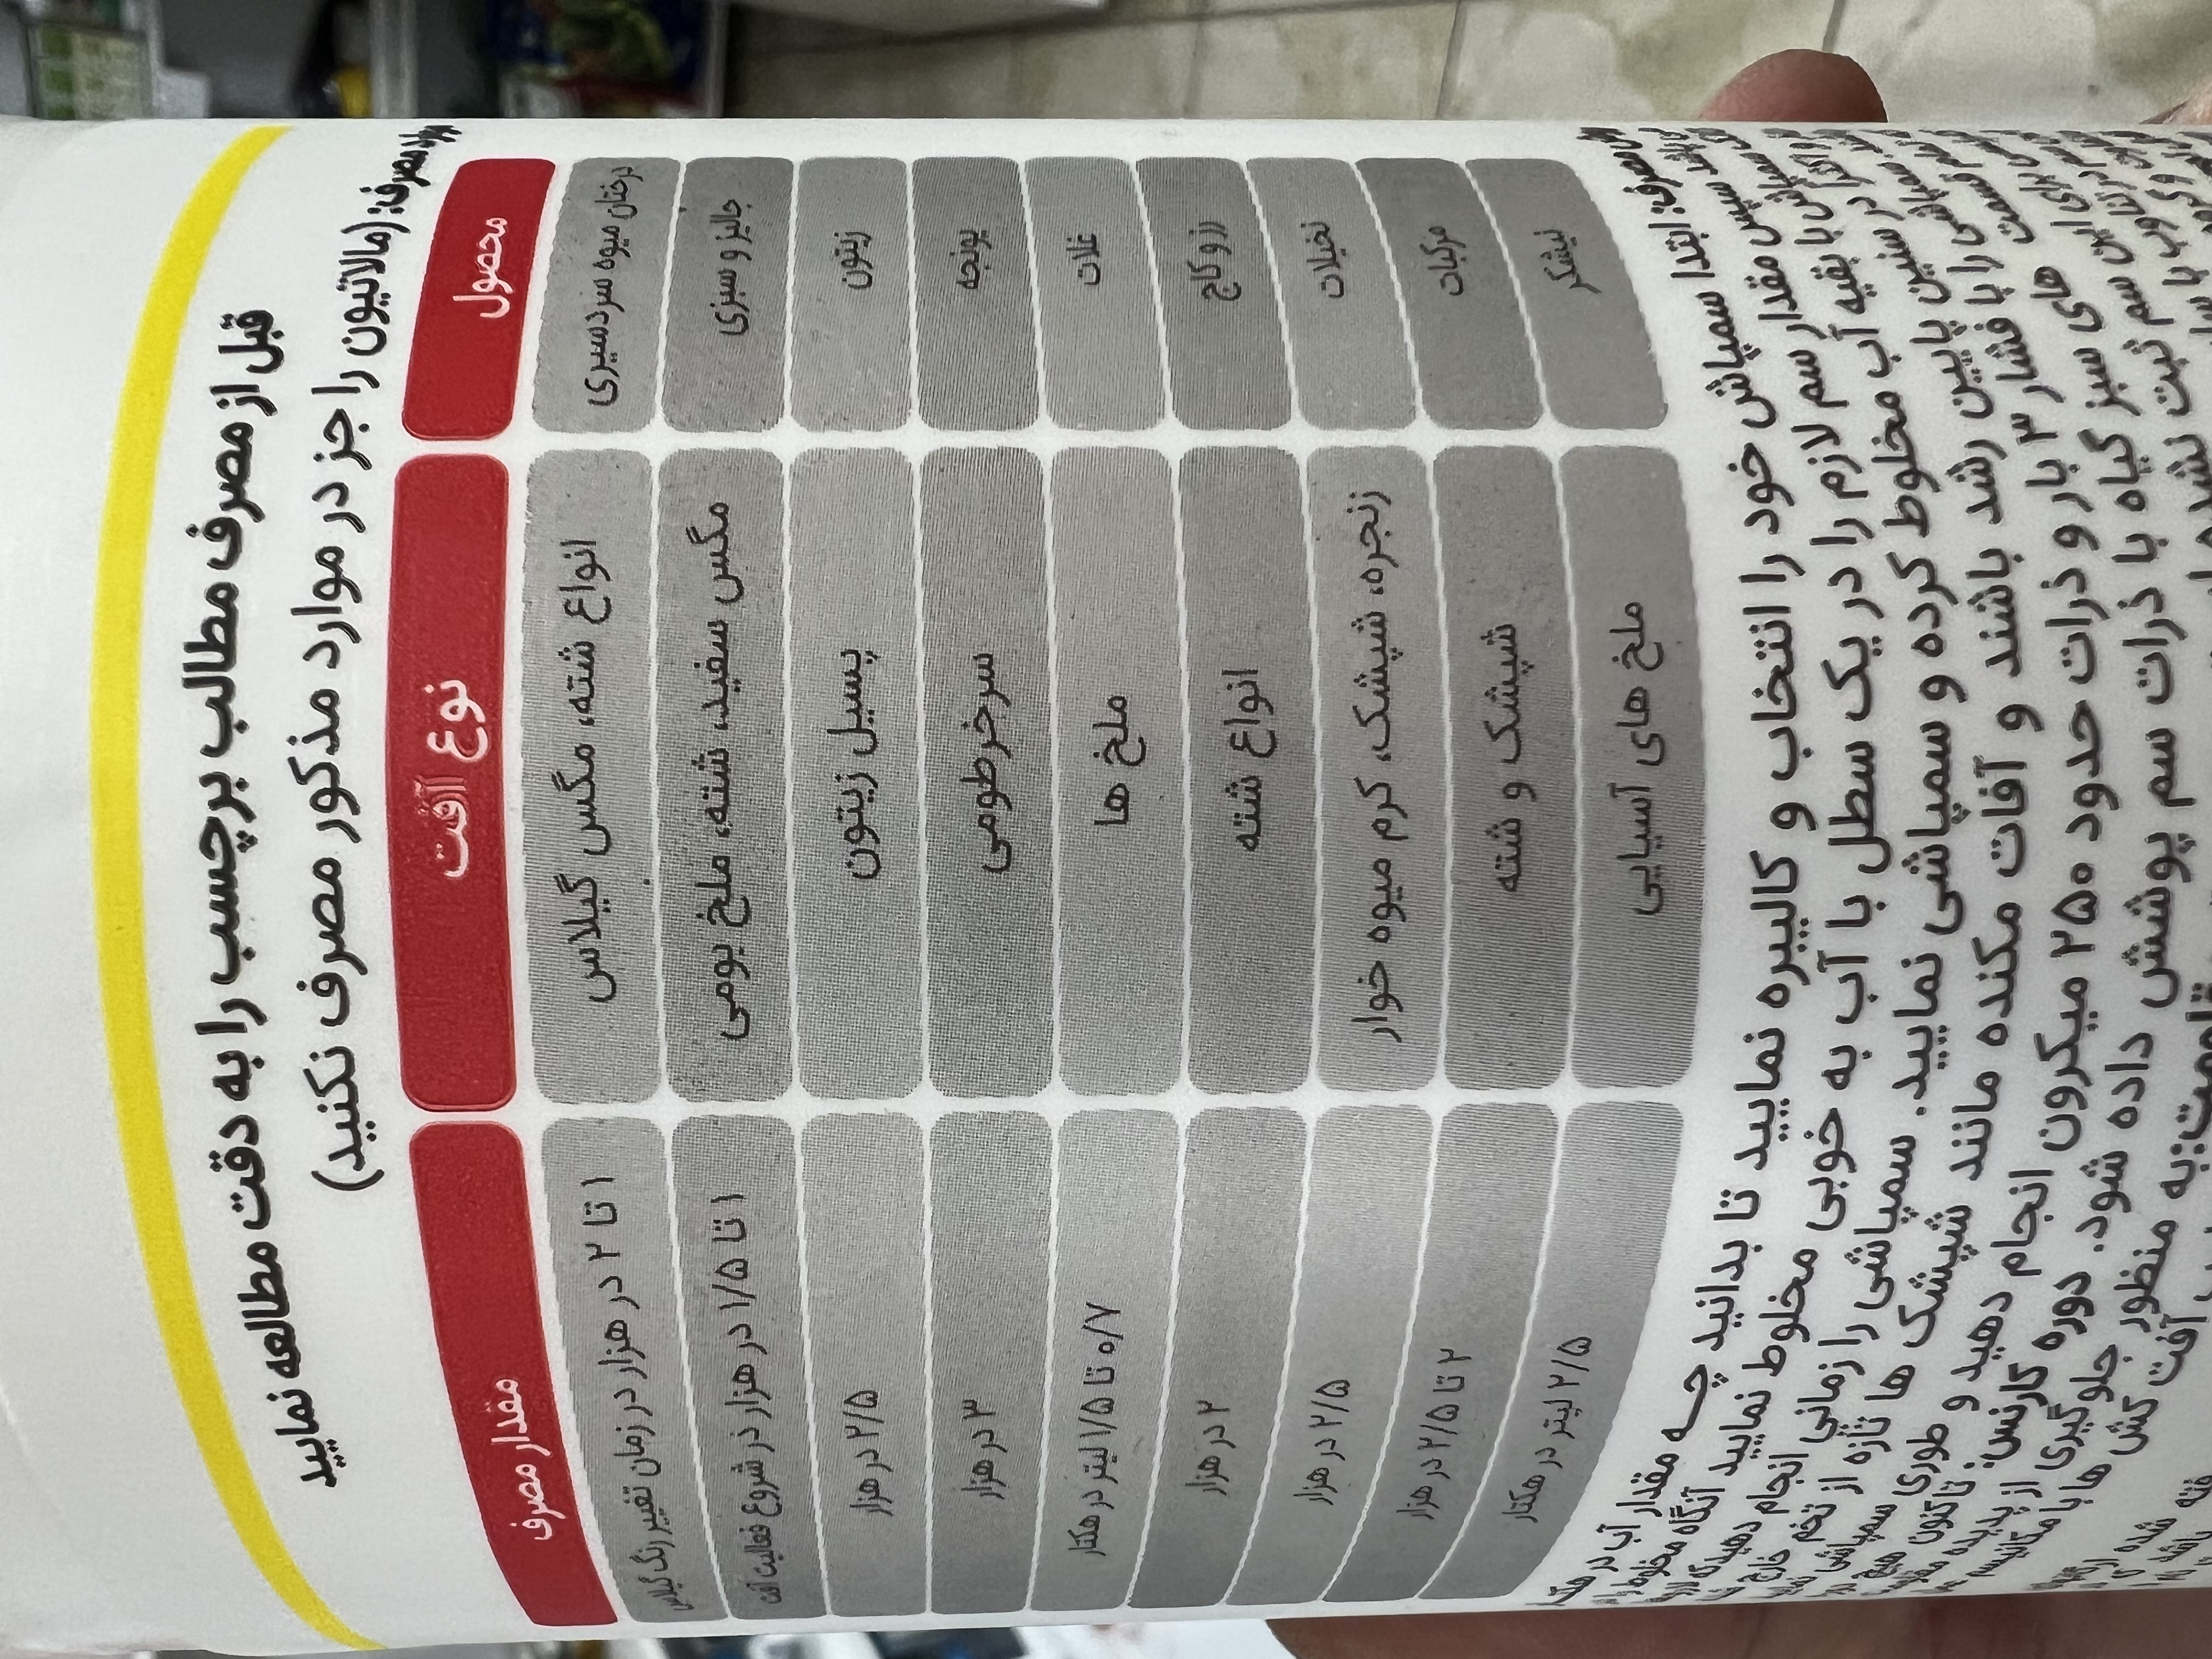 قبل از مصرف مطالب برچسب را به دقت مطالعه نمایید
مصرف: (مالاتیون را جز در موارد مذکور مصرف نکنید)
محصول نوع آافت مقدار مصرف
درختان میوه سردسیری انواع شته، مگس گیلاس ۱ تا ۲ در هزار در زمان تغییر رنگ گیلاس
جالیز و سبزی مگس سفید، شته، ملخ بومی ۱ تا ۱/۵ در هزار در شروع فعالیت آفت
زیتون پسیل زیتون ۲/۵ در هزار
یونجه سرخرطومی ۳ در هزار
غلات ملخ ها ۰/۷ تا ۱/۵ لیتر در هکتار
رز و کاج انواع شته ۲ در هزار
نخیلات زنجره، شپشک، کرم میوه خوار ۲/۵ در هزار
مرکبات شپشک و شته ۲ تا ۲/۵ در هزار
نیشکر ملخ های آسیایی ۲/۵ لیتر در هکتار
مصرف: ابتدا سمپاش خود را انتخاب و کالیبره نمایید تا بدانید چه مقدار آب در
سپس مقدار سم لازم را در یک سطل با آب به خوبی مخلوط نمایید آنگاه مخلوط را
با بقیه آب مخلوط کرده و سمپاشی نمایید. سمپاشی را زمانی انجام دهید که
در سنین پایین رشد باشند و آفات مکنده مانند شپشک ها تازه از تخم خارج
سمپاشی را با فشار ۳ بار و ذرات حدود ۲۵۰ میکرون انجام دهید و طوری سمپاشی
های سبز گیاه با ذرات سم پوشش داده شود. دوره کارنس: تاکنون هیچ
این سم ثبت نشده به منظور جلوگیری از پدیده
آفت کش ها با مکانیسم